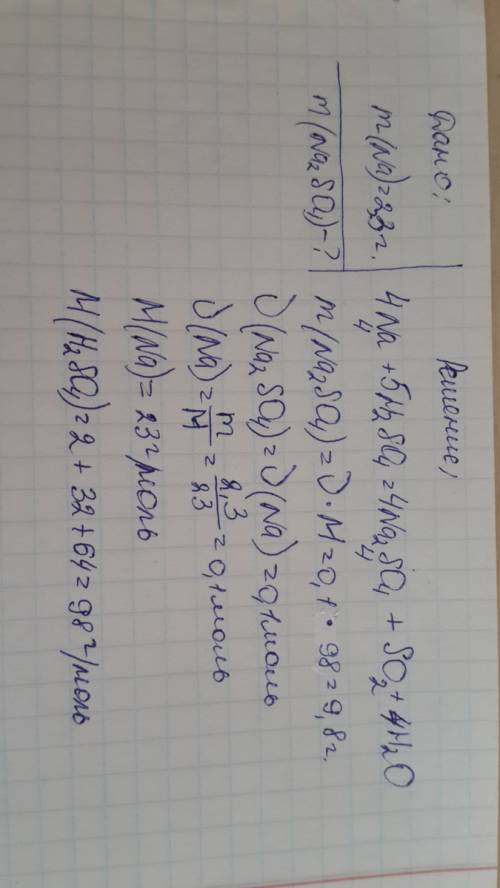 Дано:
m(Na)=2,3г.
m(Na₂SO₄)-?
Решение:
4Na + 5H₂SO₄ = 4Na₂SO₄ + SO₂ + 4H₂O
4 4
m(Na₂SO₄) = υ·M = 0,1 · 98 = 9,8г.
υ(Na₂SO₄) = υ(Na) = 0,1моль
υ(Na) = m/M = 2,3/23 = 0,1моль
M(Na) = 23г/моль
M(H₂SO₄) = 2 + 32 + 64 = 98г/моль